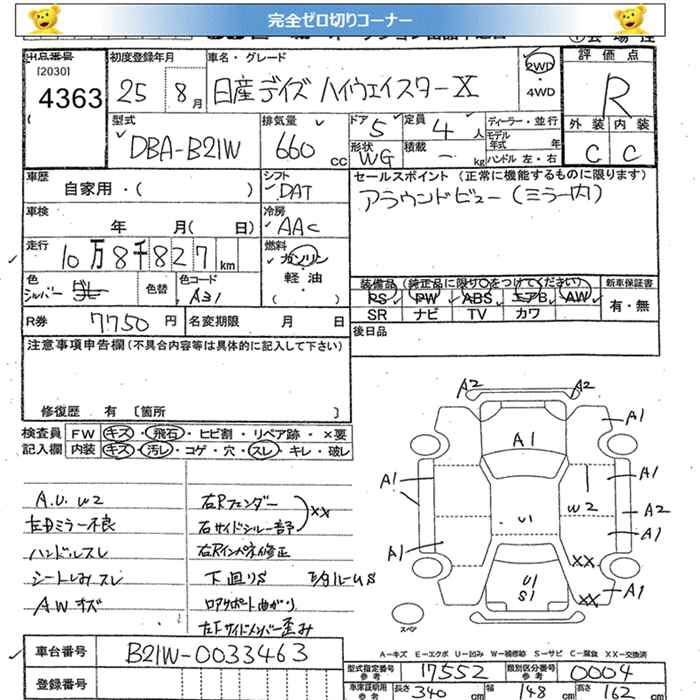 完全ゼロ切りコーナー
出品番号 初度登録年月 車名・グレード 2WD 評価点
[2030]
4363 25 8月 日産デイズ ハイウェイスターX ・ R
4WD
型式 排気量 ドア 定員 ディーラー・並行 外装 内装
DBA-B21W 660 cc 5 4人 モデル年式 年 C C
形状 WG 積載 - kg ハンドル 左・右
車歴 シフト セールスポイント (正常に機能するものに限ります)
自家用・( ) DAT アラウンドビュー(ミラー内)
車検 冷房
年 月( 日) AAC
走行 燃料
10万8千827km ガソリン
軽・油
色 色替 色コード ( ・ ) 装備品 (純正品に限り○をつけてください) 新車保証書
シルバー A31 PS PW ABS エアB AW 有・無
SR ナビ TV カワ
R券 7750円 名変期限 月 日 後日品
注意事項申告欄(不具合内容等は具体的に記入して下さい)
修復歴 有 [箇所 ]
検査員 FW キズ・飛石・ヒビ割・リペア跡・×要
記入欄 内装 キズ・汚レ・コゲ・穴・スレ・キレ・破レ
A.U. W2 右Rフェンダー
左Dミラー不良 右サイドシル一部 XX
ハンドルスレ 右Rインパネ修正
シートしみスレ 下廻りS
AWキズ ロアサポート曲がり
左Fサイドメンバー歪み
A2 A2
A1 A1
A1 A1
W2 A2
U1 A1
A1
XX
U1 A1
S1 XX
スペア
A-キズ E-エクボ U-凹み W-補修跡 S-サビ C-腐食 XX-交換済
車台番号 B21W-0033463
型式指定番号 参考 17552 類別区分番号 参考 0004
登録番号
車庫証明用 参考 長さ 340 cm 幅 148 cm 高さ 162